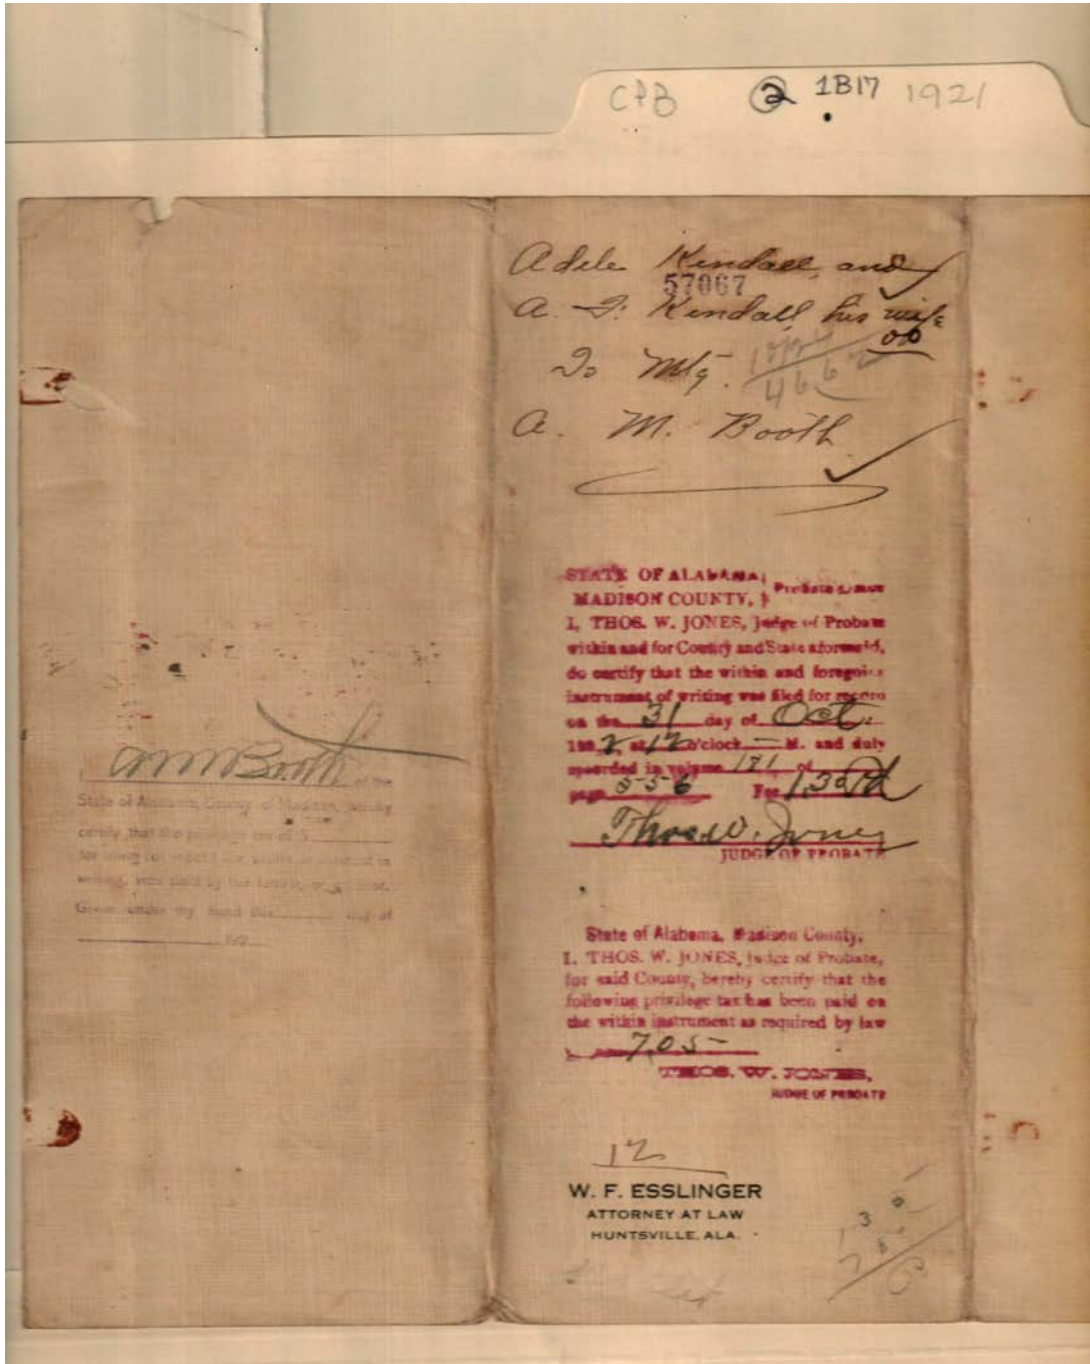 CPB 2 1B17 1921
Adele Kendall, and
57067
A. F. Kendall, his wife
To Mtg.
466
A. M. Booth
STATE OF ALABAMA,
MADISON COUNTY, Probate
I, THOS. W. JONES, Judge of Probate
within and for County and State aforesaid,
do certify that the within and foregoing
instrument of writing was filed for record
on the 31 day of Oct.
192 2, at 12 o'clock — M. and duly
recorded in volume 181 of
page 556 Fee 1.35
Thos. W. Jones
JUDGE OF PROBATE
State of Alabama, Madison County,
I, THOS. W. JONES, Judge of Probate,
for said County, hereby certify that the
following privilege tax has been paid on
the within instrument as required by law
7.05
THOS. W. JONES,
JUDGE OF PROBATE
12
W. F. ESSLINGER
ATTORNEY AT LAW
HUNTSVILLE, ALA.
I, A M Booth of the
State of Alabama, County of Madison, hereby
certify, that the privilege tax of $
for filing for record the within instrument in
writing, was paid by the
Given under my hand this day of
192